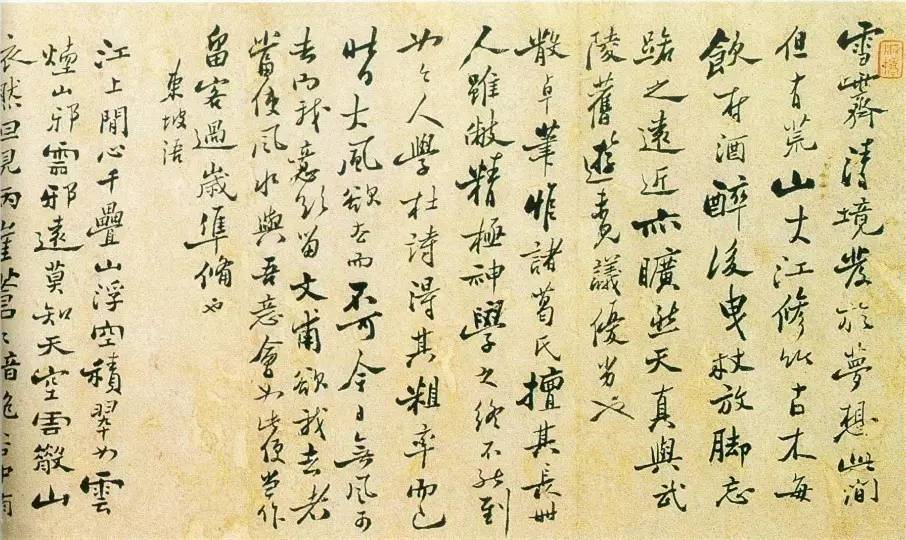 雪齋清境發於夢想此間
但有荒山大江修竹古木每
飲村酒醉後曳杖放脚忘
路之遠近亦曠然天真與武
陵舊遊未見議優劣也
散卓筆惟諸葛氏擅其長世
人雖敝精極神學之終不能到
如今人學杜詩得其粗率而已
昨日大風欲去而不可今日無風可
去而我意欲留文甫欲我去者
當使風水與吾意會如此便當作
留客過歲準備也
東坡語
江上閒心千疊山浮空積翠如雲
煙山邪雲邪遠莫知天空雲散山
依然但見兩崖蒼蒼暗絶谷中有